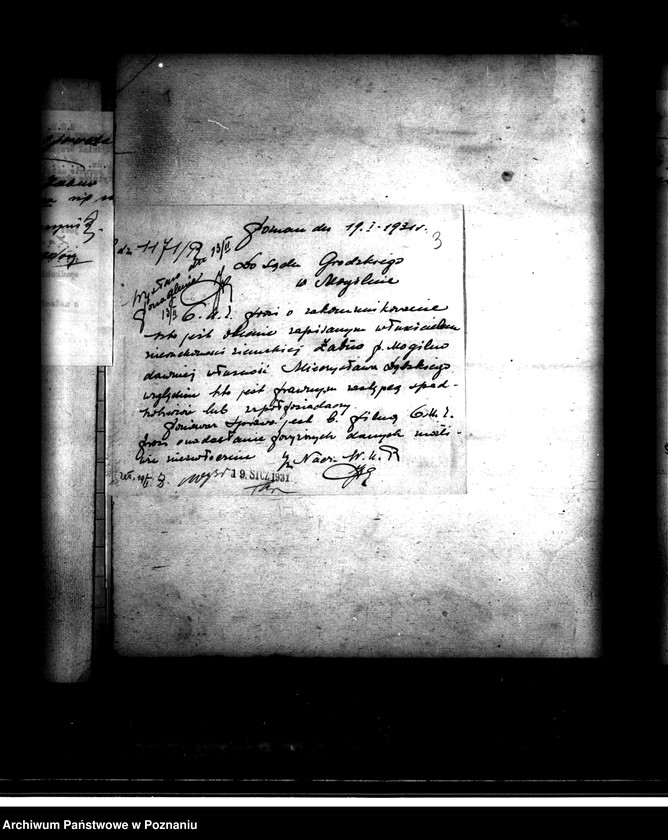 Poznań dn 19.I-1931r.
3
dz 1171/
dn 13/II
Do Sądu Grodzkiego
w Mogilnie
Wysłano
ponaglenie
13/II
prosi o zakomunikowanie
kto jest obecnie zapisanym właścicielem
nieruchomości ziemskiej Żabno p. Mogilno
dawniej własność Mieczysława
względnie kto jest prawnym zastępcą spad-
kobierców lub współposiadaczy
Ponieważ sprawa jest b. pilną
prosi o nadesłanie powyższych danych możli-
wie niezwłocznie
Nacz. W.
19. STCZ. 1931
Archiwum Państwowe w Poznaniu